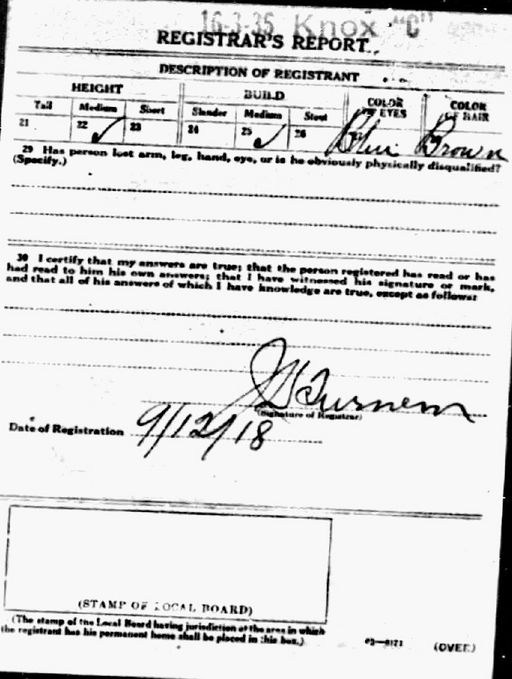 16-3-35 Knox "C"
REGISTRAR'S REPORT
DESCRIPTION OF REGISTRANT
HEIGHT BUILD COLOR OF EYES COLOR OF HAIR
Tall Medium Short Slender Medium Stout
21 22 ✓ 23 24 25 ✓ 26 27 Blue Brown
29 Has person lost arm, leg, hand, eye, or is he obviously physically disqualified?
(Specify.)
30 I certify that my answers are true; that the person registered has read or has
had read to him his own answers; that I have witnessed his signature or mark,
and that all of his answers of which I have knowledge are true, except as follows:
(Signature of Registrar)
Date of Registration 9/12/18
(STAMP OF LOCAL BOARD)
(The stamp of the Local Board having jurisdiction of the area in which
the registrant has his permanent home shall be placed in this box.)
(OVER)